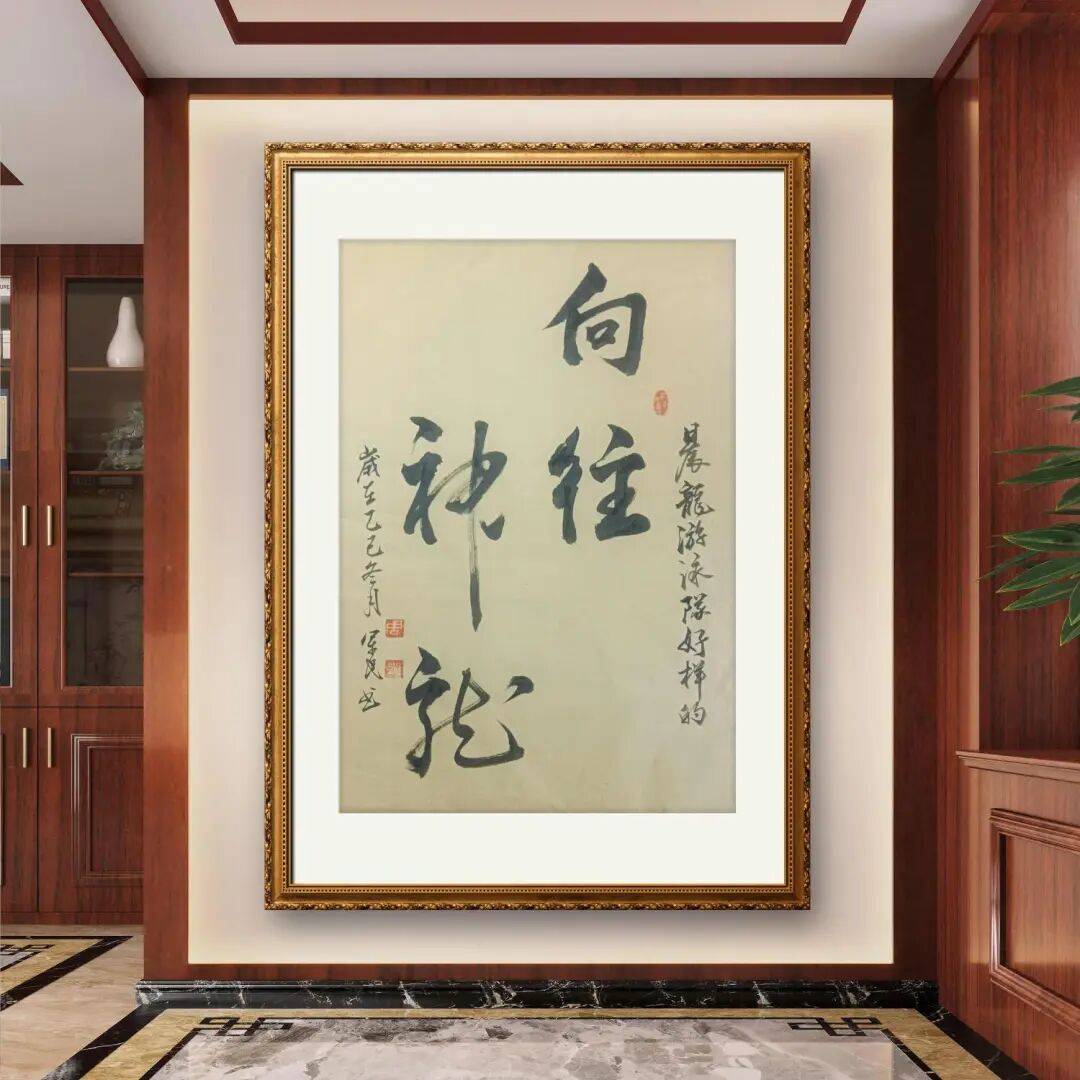 晨龍游泳隊好样的
向往
神龍
歲在乙巳冬月
民书